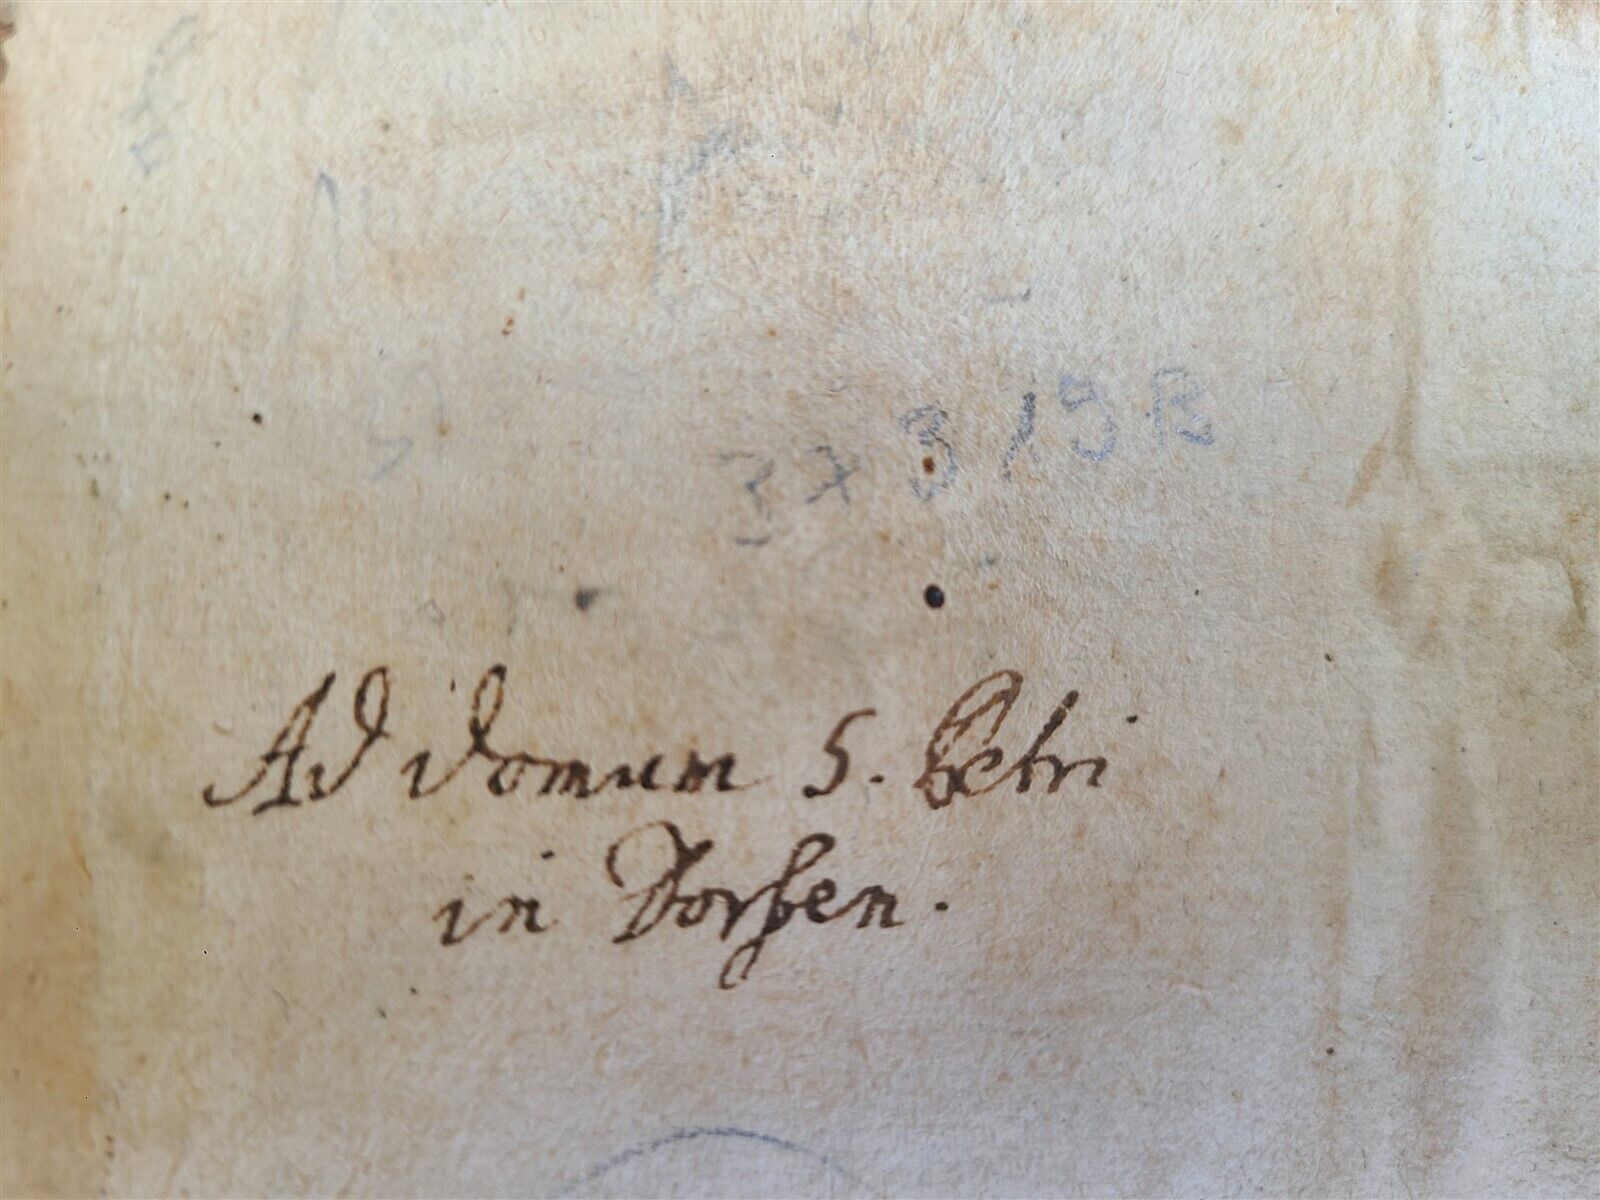 37319B
Ad domum S. Petri
in Dorfen.